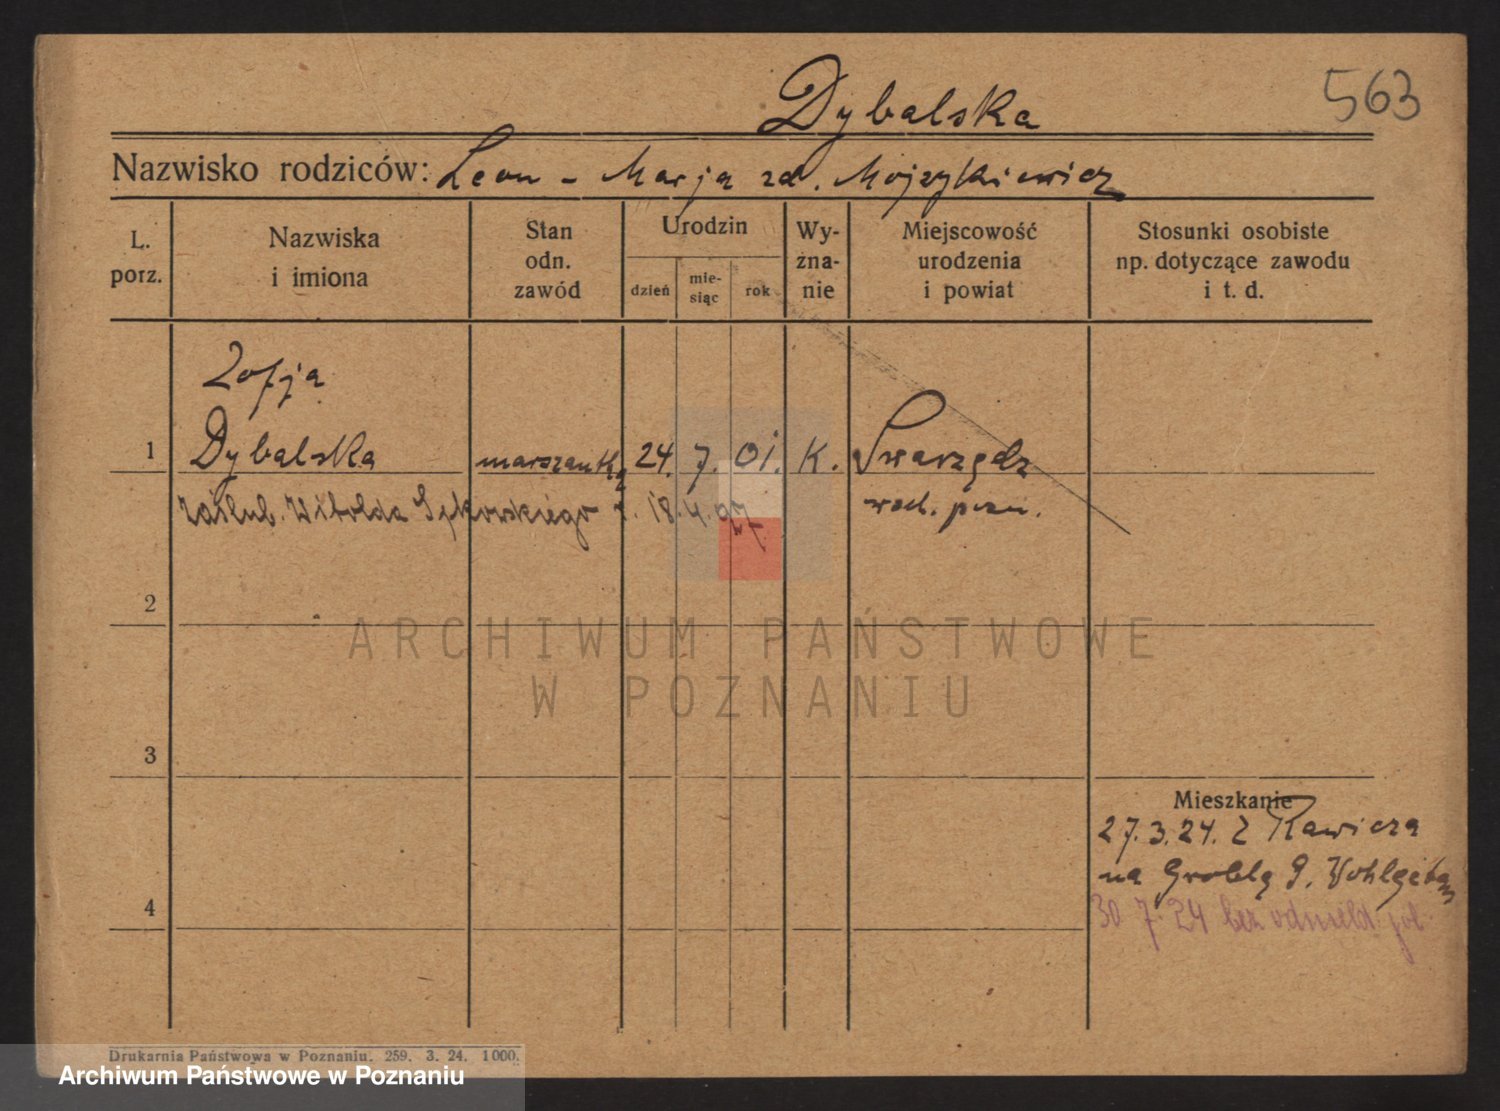 563
Dybalska
Nazwisko rodziców: Leon - Marja zd. Mojzykiewicz
L. porz.
Nazwiska i imiona
Stan odn. zawód
Urodzin
dzień
mie-siąc
rok
Wy-zna-nie
Miejscowość urodzenia i powiat
Stosunki osobiste np. dotyczące zawodu i t. d.
Zofja
1 Dybalska marszantka 24. 7. 01. K. Swarzędz
zaślub. Witolda Sękowskiego 18.4.97 wsch. pozn.
2
3
Mieszkanie
27.3.24. Z Rawicza
na Groblę 9.
4
30 7. 24 bez
Drukarnia Państwowa w Poznaniu. 259. 3. 24. 1000.
ARCHIWUM PAŃSTWOWE
W POZNANIU
Archiwum Państwowe w Poznaniu